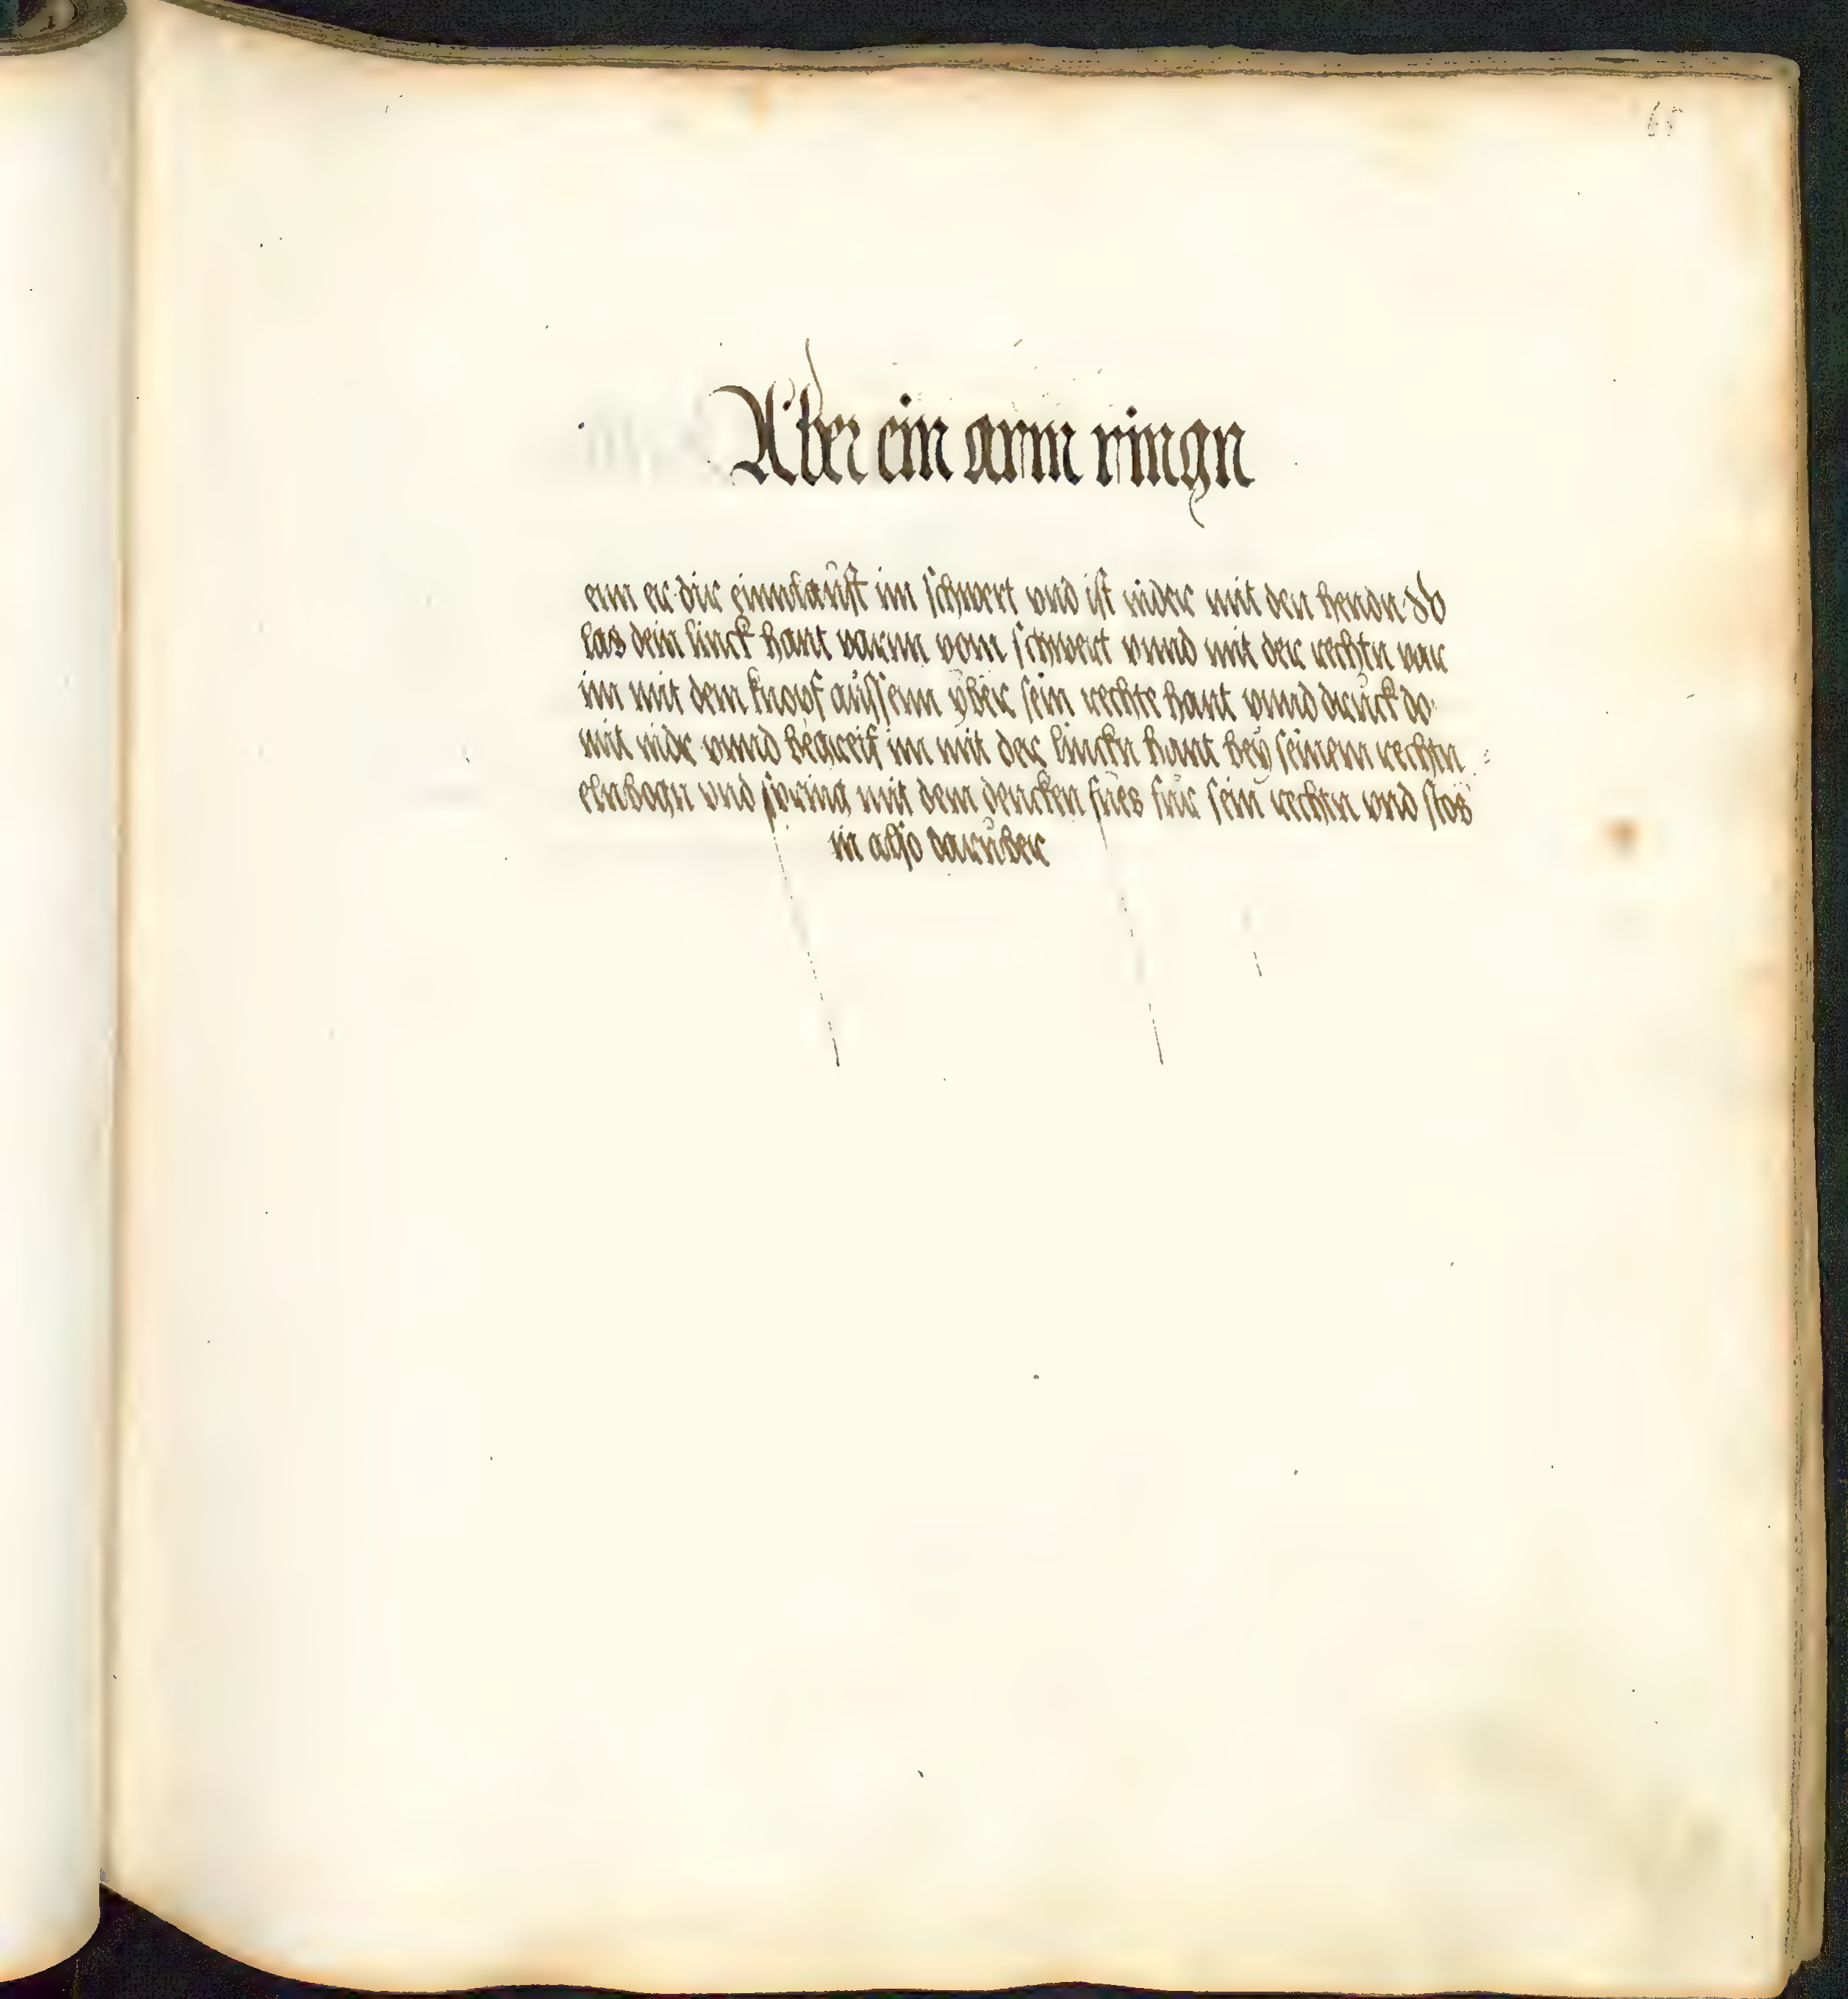 65
Aber ein arm ringn
enn er dir einnlaŭfft im schwert vnd ist nider mit den hendn so
las dein linck hant varnn vom schwert vnnd mit der rechtn var
im mit dem knopf aŭssenn über sein rechte hant vnnd drŭck do
mit nidr vnnd begreif im mit der linckn hant bey seinem rechtn
elnbogn vnd spring mit dem dencken fŭes für sein rechtn vnd stos
in also darŭber